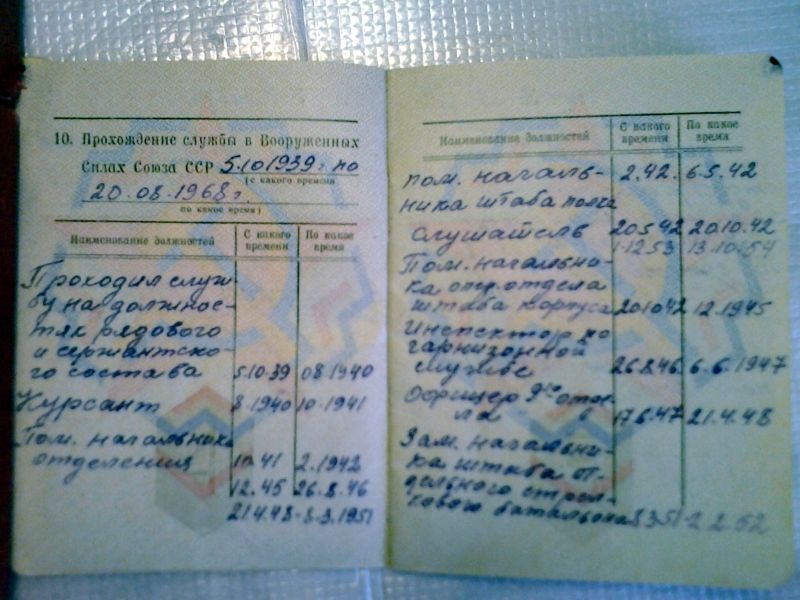 10. Прохождение службы в Вооруженных
Силах Союза ССР 5.10 1939 г. по
(с какого времени
20.08.1968 г.
по какое время)
Наименование должностей С какого времени По какое время
Проходил служ-
бу на должнос-
тях рядового
и сержантско-
го состава 5.10.39 08.1940
Курсант 8.1940 10.1941
Пом. начальника
отделения 10.41 2.1942
12.45 26.8.46
21.4.48 - 8.3.1951
Наименование должностей С какого времени По какое время
Пом. началь- 2.42. 6.5.42
ника штаба полка
Слушатель 20.5.42 20.10.42
1.12.53 13.10.54
Пом. начальни-
ка опер. отдела
штаба корпуса 20.10.42 12.1945
Инспектор по
гарнизонной
службе 26.8.46. 6.6.1947
Офицер отде-
ла 17.6.47 21.4.48
Зам. начальни-
ка штаба от-
дельного стрел-
кового батальона 8.3.51 - 2.2.52